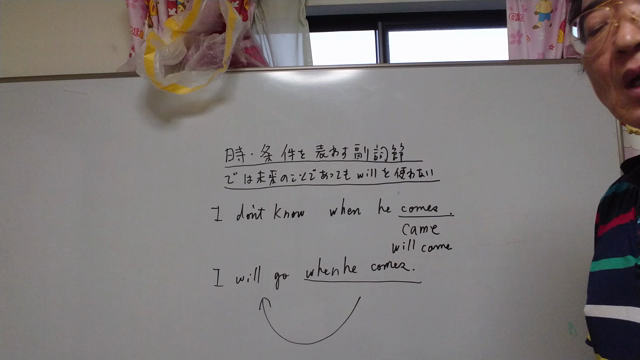 時・条件を表わす副詞節
では未来のことであってもwillを使わない
I don't know when he comes.
came
will come
I will go when he comes.